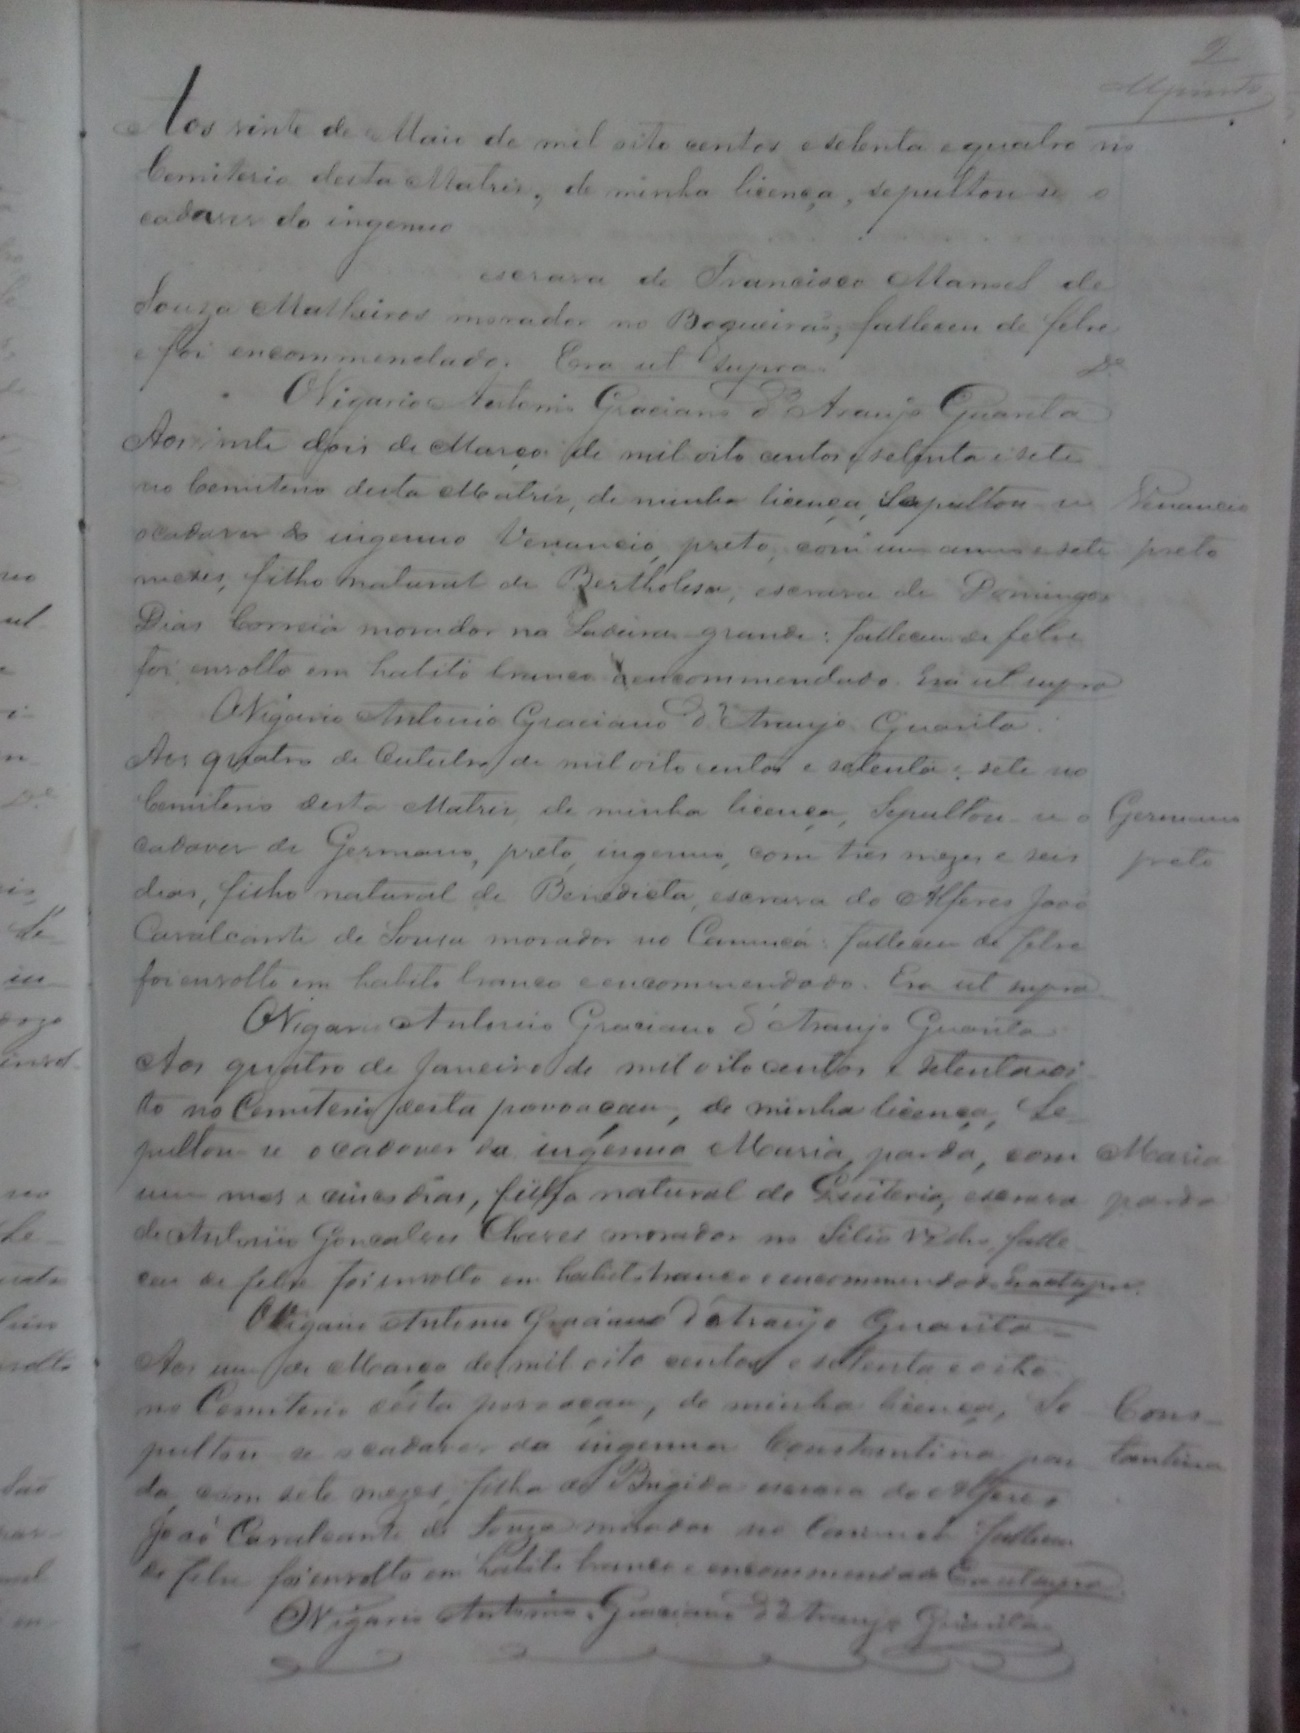 2
Aos vinte de Maio de mil oito centos e setenta e quatro no
Cemiterio desta Matriz, de minha licença, sepultou-se o
cadaver do ingenuo
escrava de Francisco Manoel de
Souza Matheiros morador no Boqueirão, falleceu de febre
e foi encommendado. Era ut supra.
O Vigario Antonio Graciano d'Araujo Guarita
Aos vinte dois de Março de mil oito centos e setenta e sete
no Cemiterio desta Matriz, de minha licença, Sepultou-se
o cadaver do ingenuo Venancio, preto, com um anno e sete
mezes, filho natural de Bertholesa, escrava de Domingos
Dias Correia morador na Ladeira grande: falleceu de febre
foi envolto em habito branco e encommendado. Era ut supra
O Vigario Antonio Graciano d'Araujo Guarita.
Venancio
preto
Aos quatro de Outubro de mil oito centos e setenta e sete no
Cemiterio desta Matriz, de minha licença, Sepultou-se o
cadaver de Germano, preto, ingenuo, com tres mezes e seis
dias, filho natural de Benedicta, escrava do Alferes João
Cavalcante de Sousa morador no : falleceu de febre
foi envolto em habito branco e encommendado. Era ut supra.
O Vigario Antonio Graciano d'Araujo Guarita
Germano
preto
Aos quatro de Janeiro de mil oito centos e setenta e oi-
to no Cemiterio desta povoação, de minha licença, Se-
pultou-se o cadaver da ingenua Maria, parda, com
um mes e cinco dias, filha natural de Quiteria, escrava
de Antonio Goncalves Chaves morador no Sitio Velho, falle-
ceu de febre foi envolto em habito branco e encommendado. Era ut supra.
O Vigario Antonio Graciano d'Araujo Guarita
Maria
parda
Aos um de Março de mil oito centos e setenta e oito
no Cemiterio desta povoação, de minha licença, Se-
pultou-se o cadaver da ingenua Constantina par-
da, com sete mezes, filha de Brigida escrava do Alferes
João Cavalcante de Souza morador no falleceu
de febre foi envolto em habito branco e encommendado Era ut supra
O Vigario Antonio Graciano d'Araujo Guarita
Cons-
tantina